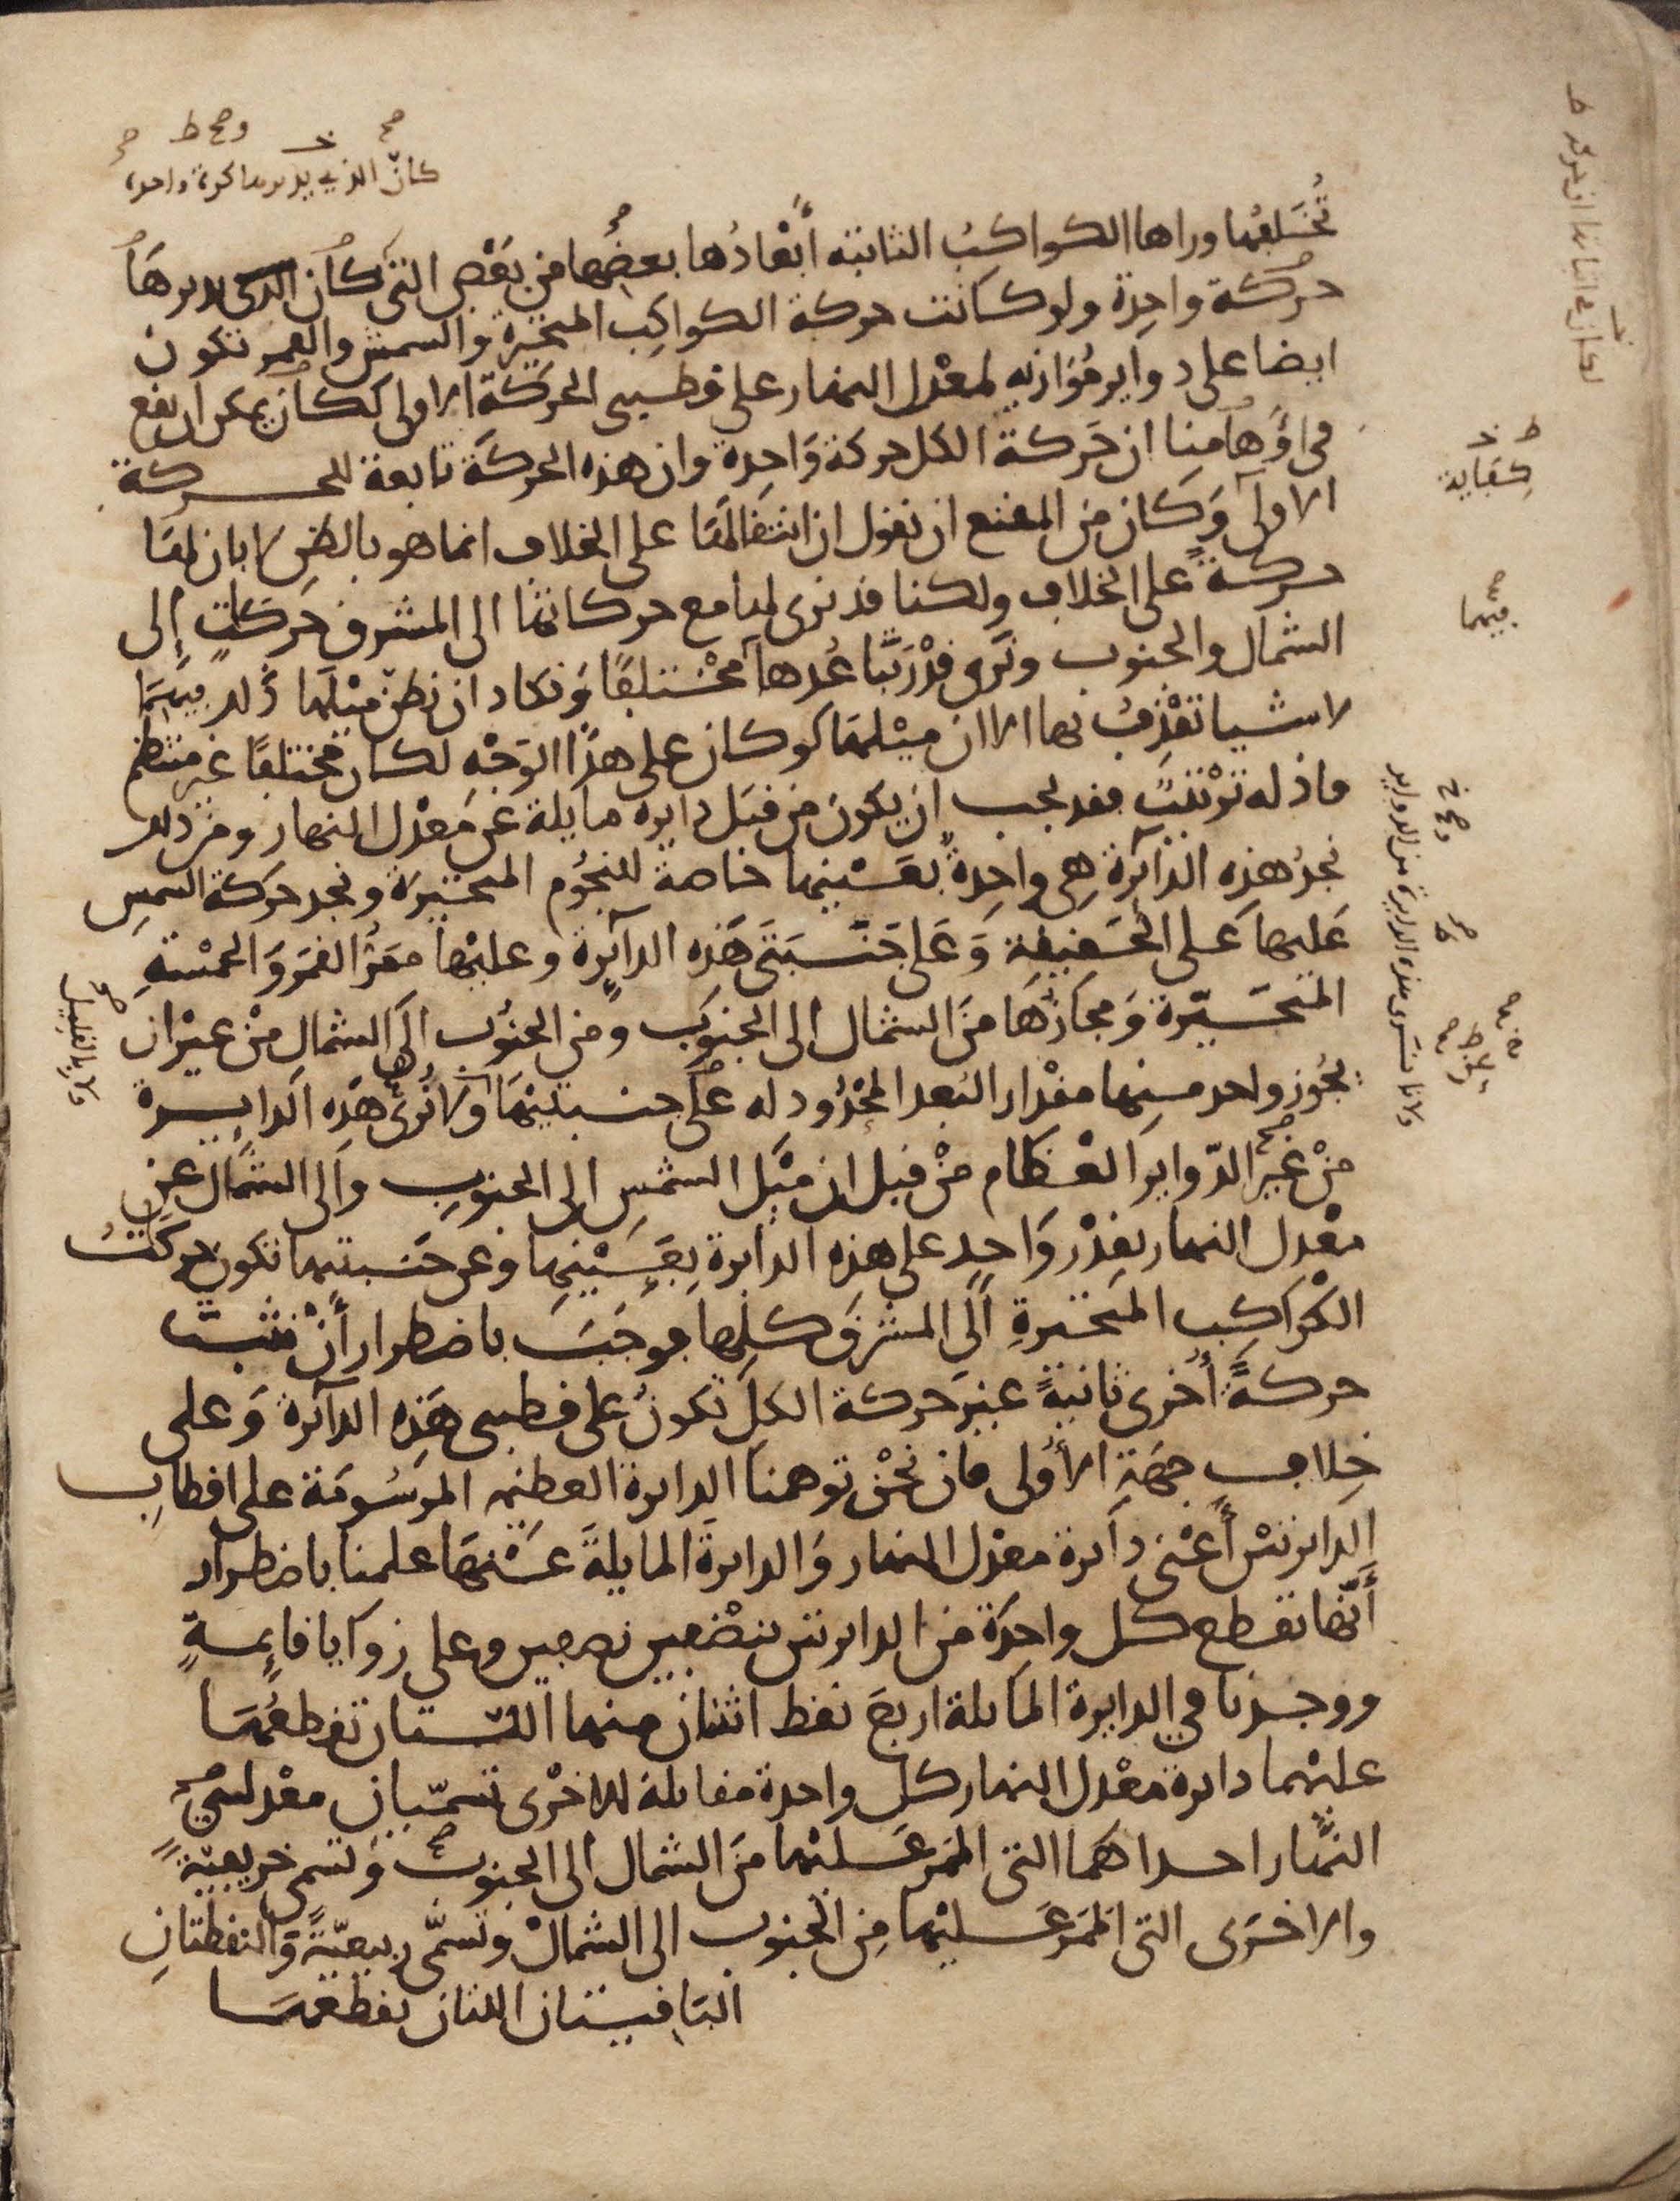 كان الذي يديرها كرة واحدة
تُخَلفها وراها الكواكبُ الثابتة أَبْعَادُها بعضُها من بَعْضٍ التي كان الذى يديرهَا
حركة واحِدة ولو كانت حركة الكواكِب المتحيّرة والشمس والقمر تكون
ايضا على دواير مُوَازيه لمعْدل النهار على قطبى الحركَة الاولى لكَان يمكن ان يقع
منا ان حَركة الكل حركة وَاحِدة وان هذه الحركَة تابعة للحركة
الاولى وَكان من المقنع ان نقول ان انتقالهَا على الخلاف انما هو بالظنّ لا بان لهَا
حركةً على الخلاف ولكنا قد نرى لها مع حركاتها الى المشرق حَركاتٍ إلى
الشمال والجنوب ونَرى قدْر تبَاعُدها مخْتلفًا وَنكاد ان نظنّ ميْلها ذلك بينهما
لاشيا تقْذِفُ بها الا ان ميْلهَا لو كان على هذا الوَجْهِ لكان مختلفًا غير منتظم
فاذ له ترْتيبٌ فقد يجب ان يكون من قبَل دايره مايلة عن مَعْدل النهار ومن ذلك
نجدُ هذِه الدَّآئرة هِي واحِدةً بعَيْنِها خاصةً للنجُوم المتحيّرَة ونجد حركَة الشمسِ
عَليها عَلى الحَقِيقةِ وَعَلى جَنَبَتَى هَذه الدآئرة وعليْها ممَرُّ القمَر وَالخمْسةِ
المتحَيّرة وَمجازُهَا منَ الشمال إلى الجنوب وَمن الجنُوب الَى الشمالِ منْ غيْر ان
يجُوز واحد منها مقْدار البُعد المحْدُود له عَلَى جنبتيْهَا ولا نُرى هَذِه الدايرة
منْ غيْر الدّواير العْظام منْ قبل ان ميْل الشمْسِ إلى الجنوبِ وَالى الشمال عنْ
معْدل النهار بقدْر وَاحدٍ على هذِه الدايرة بِعَيْنِها وعن جَنَبتيها تكون حركَاتُ
الكوَاكِبِ المتحيرةِ الَى المشرقِ كلها فوجَبَ باضطرار أَنْ نثبت
حركةً أُخرى ثانيةً غيرَ حركة الكل تكونُ على قطبى هَذِه الدآئرة وَعلى
خِلاف جهَةِ الأُولى فان نحْنُ توهمنا الدايرة العظيمه المرسُومَة على اقطاب
الدايرتيْن أَعْنى دآئرة معْدل النهار وَالدايرةَ المايلةَ عَيْنهَا علمنا باضطرار
أَنَّها تقطع كل واحِدَة منَ الدايرتين بنصْفين نصفين وعلى زوَايا قايمةٍ
ووجدنا في الدايرة المايلة اربع نقط اثنتان منها اللتان تقطعُهَا
عليْهما دايرة معْدل النهار كل واحدة مقابلة للاخْرى تسمّيان معْدلتي
النهار احداهما التى الممَر عَليْها منَ الشمال الى الجنوب وَتسمى خريفيّةً
والاخرَى التى الممَر عَليْها مِن الجنوب الى الشمالْ وتسمَّى ربيعيّةً وَالنقطتانِ
البَاقيتان اللتان يقطعهَا
كفاية
بينهما